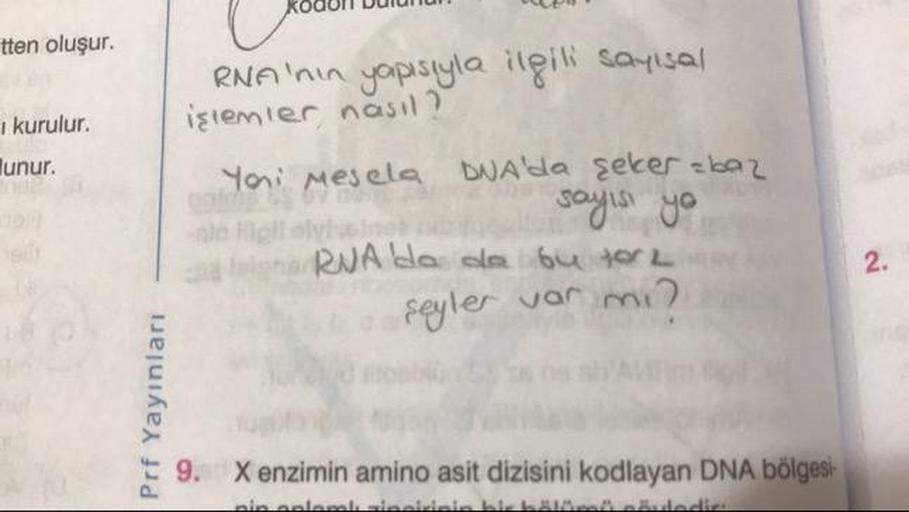 kodon bulunur.
tten oluşur.
RNA'nın yapısıyla ilgili sayısal
işlemler, nasıl?
ı kurulur.
lunur.
Yani Mesela DNA'da şeker=baz
sayısı ya
RNA'da da bu tarz
şeyler var mı?
2.
Prf Yayınları
9. X enzimin amino asit dizisini kodlayan DNA bölgesi-
nin anlamlı zincirinin bir bölümü şöyledir: